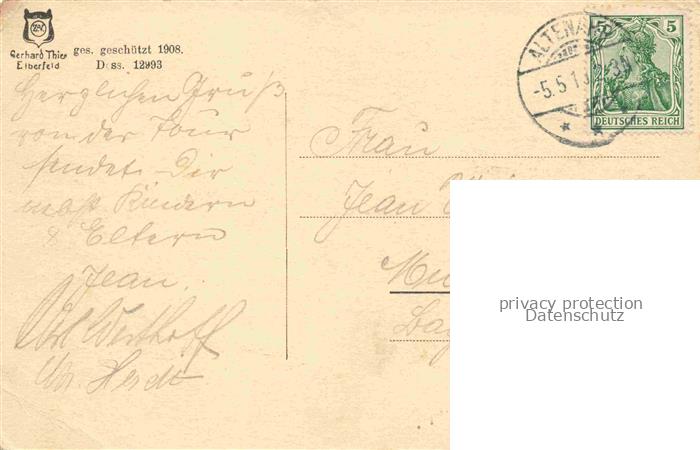 Gerhard Thien
Elberfeld
ges. geschützt 1908.
Dess. 12993
ALTENAHR
-5.5.13
5
DEUTSCHES REICH
Herzlichen Gruß
von der Tour
sendet Dir
nebst Kindern
& Eltern
Jean.
Westhoff
Frau
Jean
privacy protection
Datenschutz